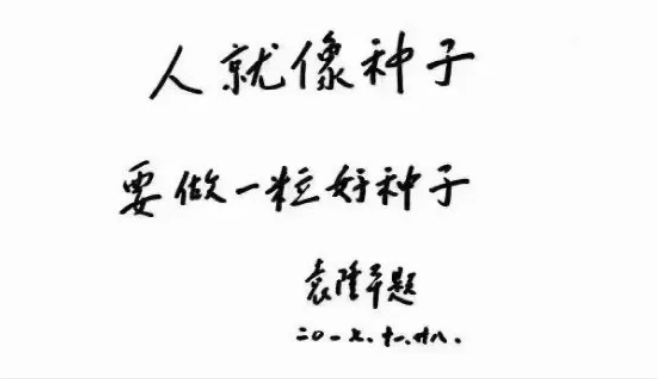 人就像种子
要做一粒好种子
袁隆平题
二〇一七、十一、廿八、